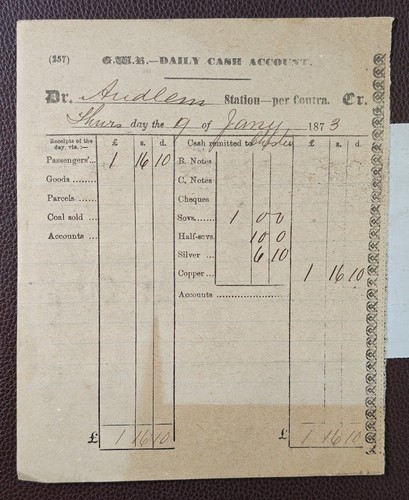 (257) G.W.R.—DAILY CASH ACCOUNT.
Dr. Audlem Station—per Contra. Cr.
Thurs day the 9 of Jany 1873
Receipts of the day, viz. :— £ s. d. Cash remitted to £ s. d.
Passengers'... 1 16 10 B. Notes
Goods ..... C. Notes
Parcels .... Cheques
Coal sold ... Sovs. ... 1 0 0
Accounts ... Half-sovs. 10 0
Silver ... 6 10
Copper ... 1 16 10
Accounts .........
£ 1 16 10 £ 1 16 10